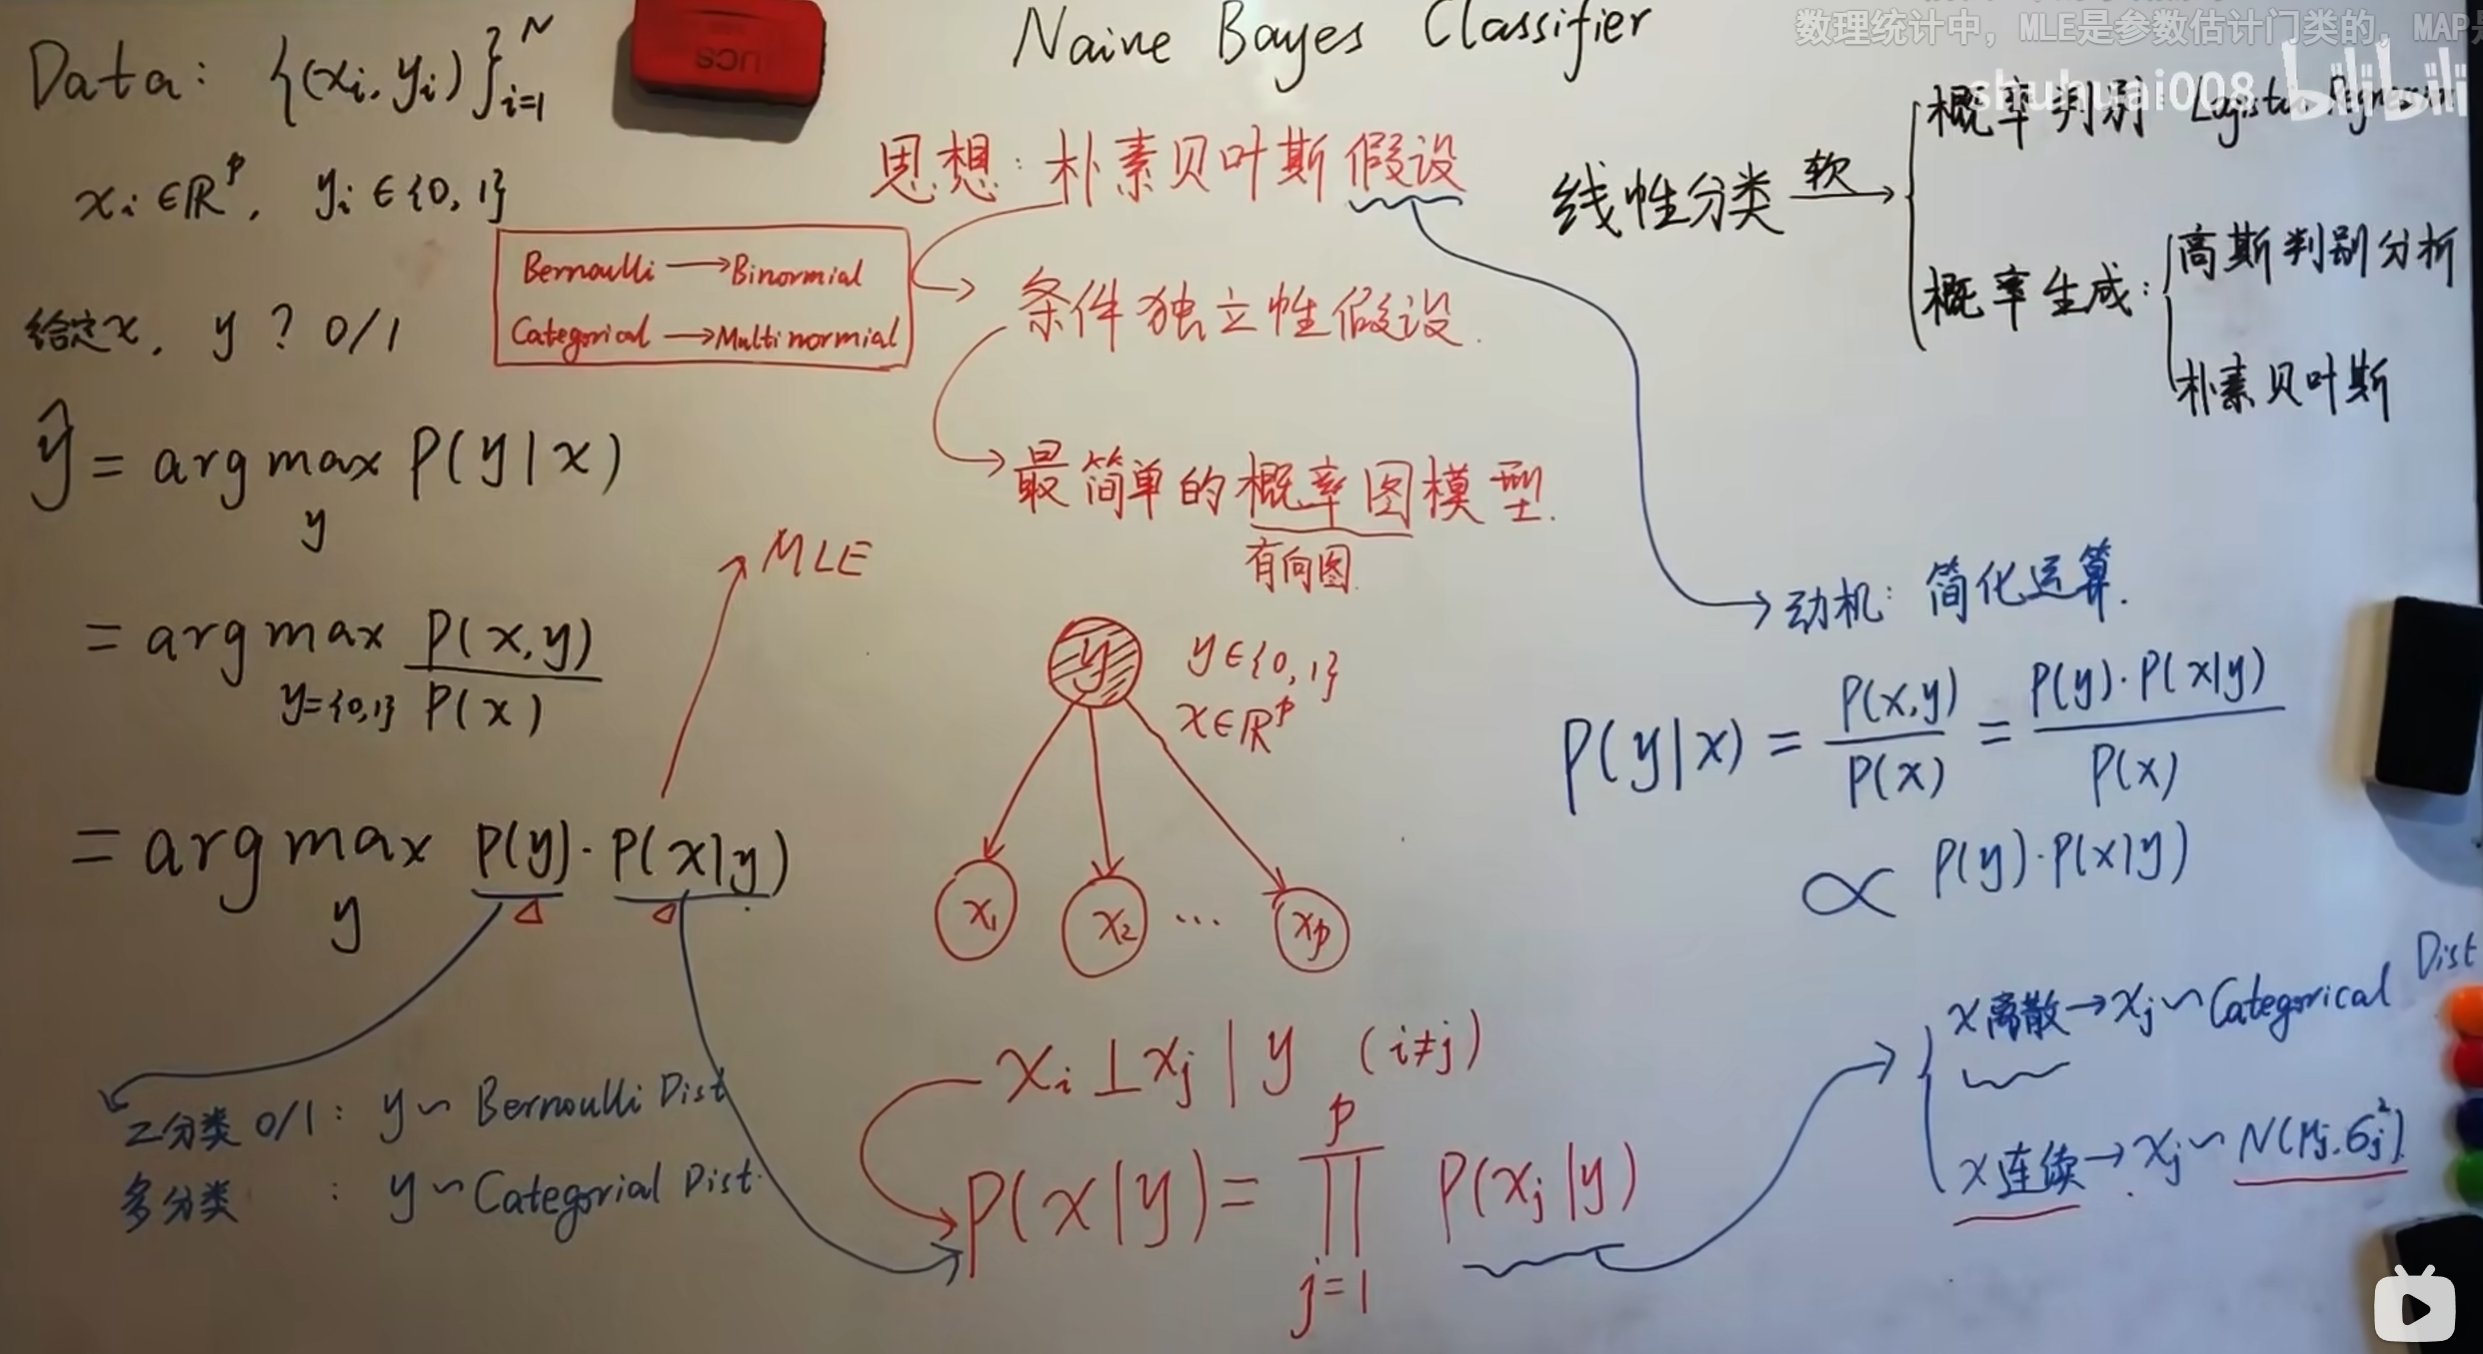 Naive Bayes Classifier
数理统计中，MLE是参数估计门类的，MAP
shuhuai008 bilibili
Data: {(xᵢ, yᵢ)}ᵢ₌₁ᴺ
xᵢ ∈ ℝᵖ, yᵢ ∈ {0, 1}
给定x, y ? 0/1
ŷ = arg max P(y|x)
y
= arg max P(x,y) / P(x)
y={0,1}
= arg max P(y)·P(x|y)
y
MLE
二分类 0/1: y ~ Bernoulli Dist
多分类 : y ~ Categorial Dist.
Bernoulli → Binormial
Categorical → Multinormial
思想: 朴素贝叶斯假设
→ 条件独立性假设.
→ 最简单的概率图模型.
有向图.
y
y ∈ {0, 1}
x ∈ ℝᵖ
x₁ x₂ ... xₚ
xᵢ ⊥ xⱼ | y (i≠j)
P(x|y) = ∏ⱼ₌₁ᵖ P(xⱼ|y)
线性分类 软→
概率判别: Logistic Regression
概率生成:
高斯判别分析
朴素贝叶斯
→ 动机: 简化运算.
P(y|x) = P(x,y) / P(x) = P(y)·P(x|y) / P(x)
∝ P(y)·P(x|y)
x离散 → xⱼ ~ Categorical Dist
x连续 → xⱼ ~ N(μⱼ, σⱼ²)